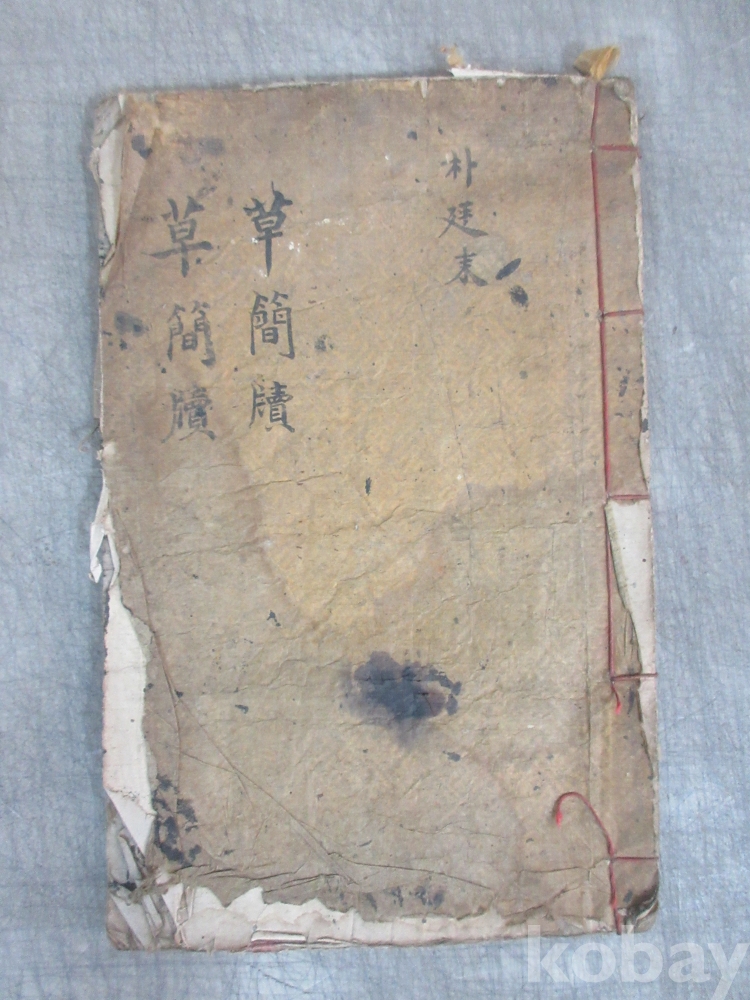 朴廷末
草簡牘
草簡牘
kobay